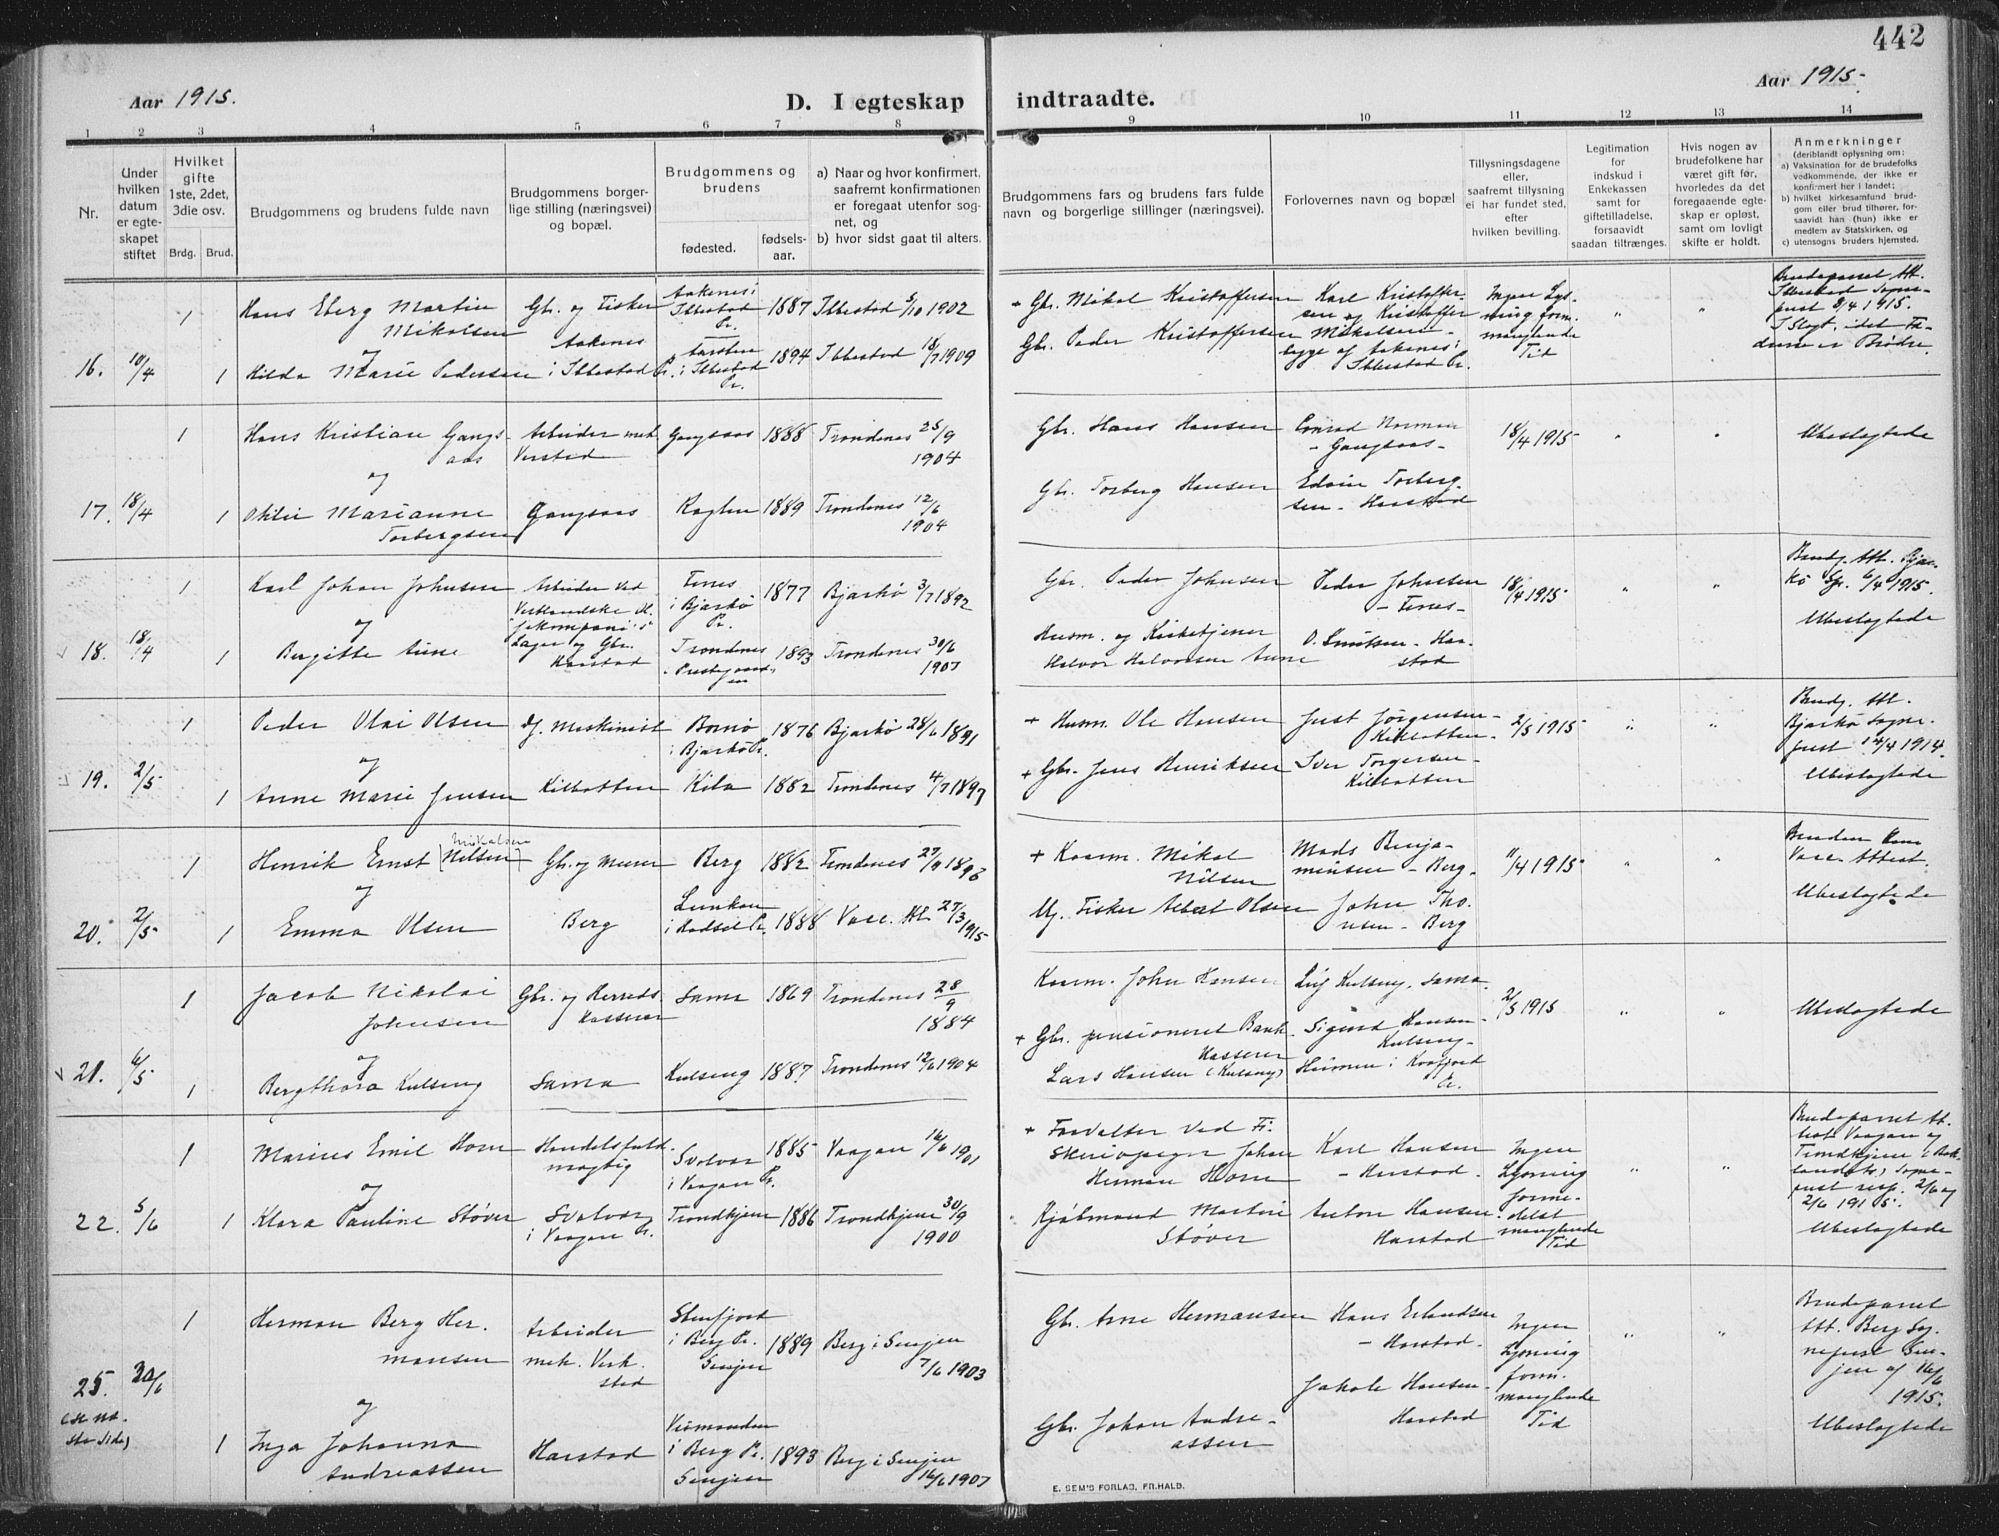 442
Aar 1915.
D. I egteskap indtraadte.
Aar 1915.
1 2 3 4 5 6 7 8 9 10 11 12 13 14
Nr.
Under
hvilken
datum
er egte-
skapet
stiftet
Hvilket
gifte
1ste, 2det,
3die osv.
Brdg. Brud.
Brudgommens og brudens fulde navn
Brudgommens borger-
lige stilling (næringsvei)
og bopæl.
Brudgommens og
brudens
fødested.
fødsels-
aar.
a) Naar og hvor konfirmert,
saafremt konfirmationen
er foregaat utenfor sog-
net, og
b) hvor sidst gaat til alters.
Brudgommens fars og brudens fars fulde
navn og borgerlige stillinger (næringsvei).
Forlovernes navn og bopæl
Tillysningsdagene
eller,
saafremt tillysning
ei har fundet sted,
efter
hvilken bevilling.
Legitimation
for
indskud i
Enkekassen
samt for
giftetilladelse,
forsaavidt
saadan tiltrænges.
Hvis nogen av
brudefolkene har
været gift før,
hvorledes da det
foregaaende egte-
skap er opløst,
samt om lovligt
skifte er holdt.
Anmerkninger
(deriblandt oplysning om:
a) Vaksination for de brudefolks
vedkommende, der ikke er
konfirmert her i landet;
b) hvilket kirkesamfund brud-
gom eller brud tilhører, for-
saavidt han (hun) ikke er
medlem av Statskirken, og
c) utensogns bruders hjemsted.
16. 10/4
1
Hans Eberg Martin
Mikolsen
og
1 Hilda Marie Pedersen
Gbr. og Fisker
Aakenes
i Ibbestad Pr.
Aakenes i
Ibbestad
Pr.
1887
Ibbestad 5/10 1902
i Ibbestad
Pr.
1894
Ibbestad 18/7 1909
+ Gbr. Mikal Kristoffersen
Gbr. Peder Kristoffersen
Karl Kristoffer-
sen og Kristoffer
Mikolsen -
begge af Aakenes i
Ibbestad Pr.
Ingen Lys-
ning form.
manglende
Tid
" "
Brudeparret Att.
Ibbestad Sogne-
prest 8/4 1915.
I Slegt, idet Fæ-
drene er Brødre.
17. 18/4
1
Hans Kristian Gangs-
aas
og
1
Marianne
Torbergsen
Arbeider mek
Verksted
Gangsaas
Gangsaas 1888 Trondenes 25/9
1904
1889 Trondenes 12/6
1904
Gbr. Hans Hansen
Gbr. Torberg Hansen
Conrad Norman
- Gangsaas -
Edvin Torberg-
sen - Harstad
18/4 1915
" "
Ubeslegtede
18. 18/4
1
Karl Johan Johnsen
og
1 Bergitte Aune
Arbeider ved
Vestlandske Ol-
jekompani's
Lager og Gbr.
Harstad
i Bjarkø
Pr.
1877 Bjarkø 3/7 1892
Trondenes
Prestegaard
1893 Trondenes 30/6
1907
Gbr. Peder Johnsen
Husm. og Kirketjener
Halvor Halvorsen Aune
Peder Johnsen
Har-
stad
18/4 1915
" "
Brudg. Att. Bjar-
kø Spr. 6/4 1915.
Ubeslegtede
19. 2/5
1
Peder Olai Olsen
og
1 Anne Marie Jensen
Df. Maskinist
Kilbotten
i Bjarkø Pr.
1876 Bjarkø 28/6 1891
Kila 1882 Trondenes 4/7 1897
+ Husm. Ole Hansen
+ Gbr. Jens Henriksen
Just Jørgensen -
Kilbotten -
Iver Torgersen -
Kilbotten
2/5 1915
" "
Brudg. Att.
Bjarkø Sogne-
prest 14/4 1914.
Ubeslegtede
20. 2/5
1
Henrik Ernst (Nilsen)
Mikalsen
og
1 Emma Olsen
Gbr. og Murer
Berg
Berg 1882 Trondenes 27/9 1896
i Hadsel Pr. 1888 Vacc. Att. 27/3 1915
+ Kaarm. Mikal
Nilsen
Uf. Fisker Albert Olsen
Mads Benja-
minsen - Berg -
John Tho-
Berg
11/4 1915
" "
Bruden
Vacc. Attest.
Ubeslegtede
21. 6/5
1
Jacob Nikolai
Johnsen
og
1 Bergthora Kulseng
Gbr. og Herreds-
kasserer
Sama
Sama 1869 Trondenes 28/9
1884
Kulseng 1887 Trondenes 12/6 1904
Kaarm. John Hansen
+ Gbr. pensioneret Bank-
kasserer
Lars Hansen (Kulseng)
Leif Kulseng, Sama
Sigurd Hansen -
Kulseng -
i Kvæfjord
Pr.
2/5 1915
" "
Ubeslegtede
22. 5/6
1
Marius Emil Horn
og
1 Klara Pauline Støver
Handelsfuld-
mægtig
Svolvær
i Vaagan Pr.
Svolvær
i Vaagan Pr.
1885 Vaagan 16/6 1901
Trondhjem 1886 Trondhjem 30/9
1900
+ Forvalter ved Fi-
skeriopsyn Johan
Herman Horn
Hjalmand Martin
Støver
Karl Hansen
- Harstad -
Anton Hansen
Harstad
Ingen
Lysning
forme-
delst
manglende
Tid
" "
Brudeparret At-
test Vaagan og
Trondhjem
Sogne-
prest resp. 2/6 og
2/6 1915.
Ubeslegtede
25. 20/6
1
Herman Berg Her-
mansen
og
1 Inga Johanna
Andreassen
Arbeider
mek. Verk-
sted
Harstad
Stenfjord
i Berg Pr.
Senjen
1889 Berg i Senjen
7/6 1903
i Berg Pr.
Senjen
1893 Berg i Senjen
16/6 1907
Gbr. Arne Hermansen
Gbr. Johan Andre-
assen
Hans Erlandsen
- Harstad -
Jakob Hansen -
Harstad
Ingen
Lysning
form.
manglende
Tid
" "
Brudeparret
Att. Berg Sog-
neprest Sen-
jen af 16/6
1915.
Ubeslegtede
E. SEM'S FORLAG, FR.HALD.